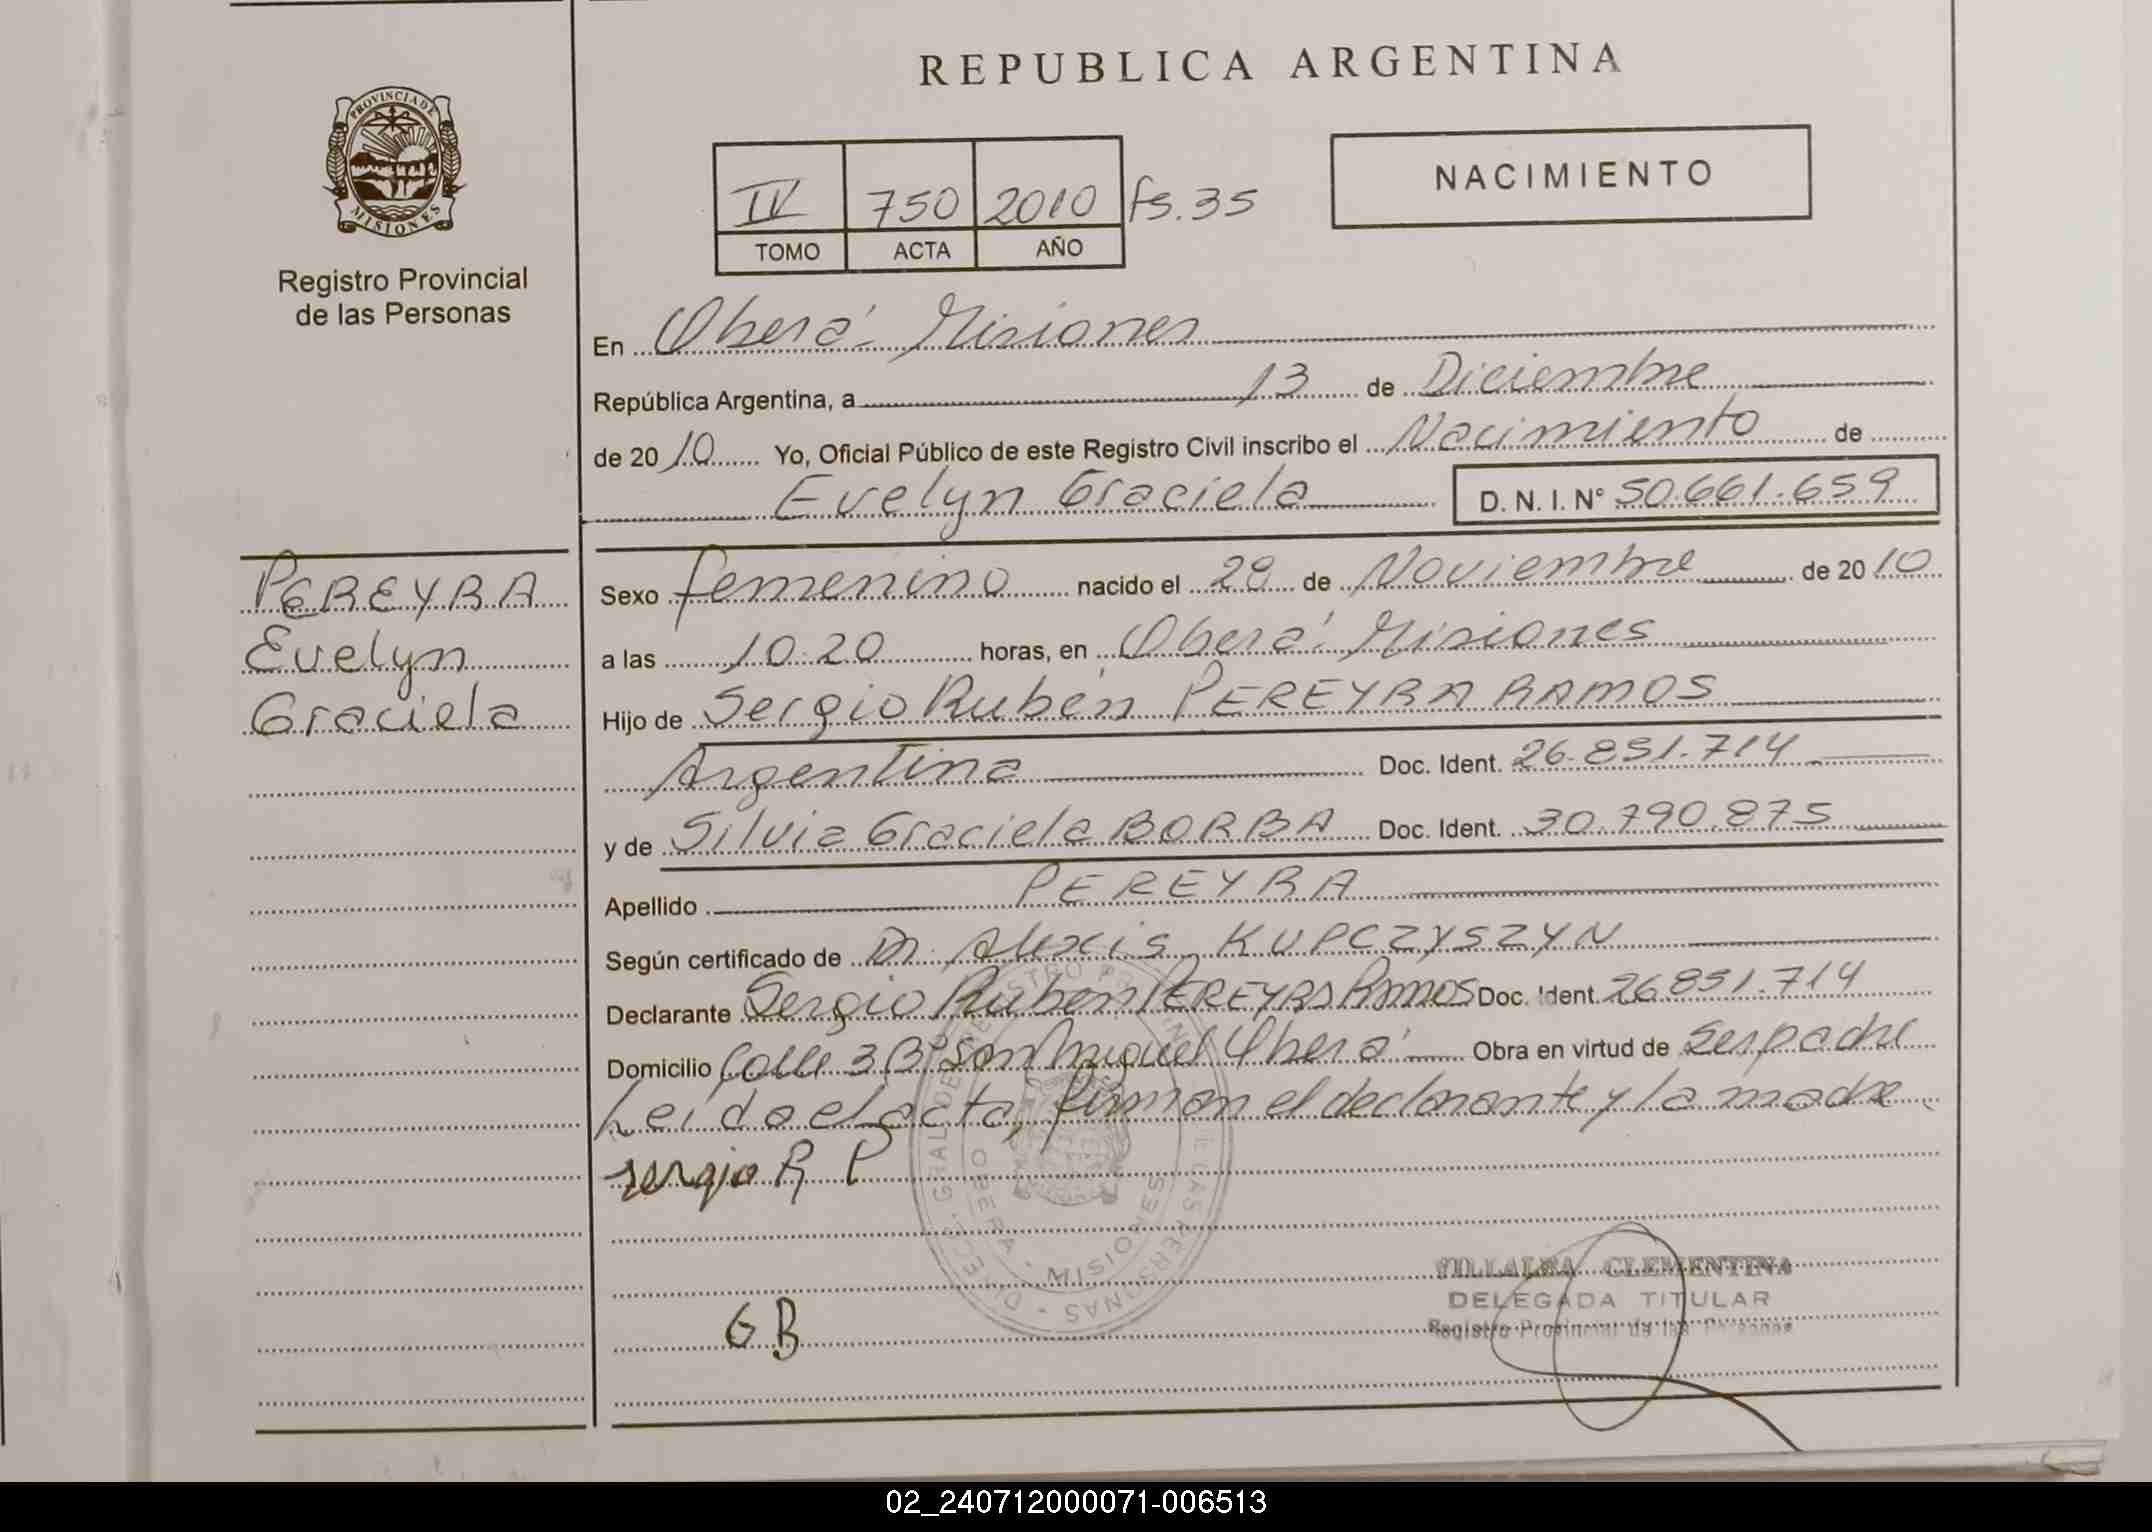 REPUBLICA ARGENTINA
PROVINCIA DE
MISIONES
Registro Provincial
de las Personas
NACIMIENTO
IV 750 2010 fs. 35
TOMO ACTA AÑO
En Oberá - Misiones
República Argentina, a 13 de Diciembre
de 2010 Yo, Oficial Público de este Registro Civil inscribo el Nacimiento de
Evelyn Graciela D. N. I. N° 50.661.659
PEREYRA
Evelyn
Graciela
Sexo femenino nacido el 28 de Noviembre de 2010
a las 10:20 horas, en Oberá. Misiones
Hijo de Sergio Rubén PEREYRA RAMOS
Argentina Doc. Ident. 26.851.714
y de Silvia Graciela BORBA Doc. Ident. 30.790.875
Apellido PEREYRA
Según certificado de Dr. Alexis KUPCZYSZYN
Declarante Sergio Ruben PEREYRA RAMOS Doc. Ident. 26851.714
Domicilio Calle 3 B° San Miguel Oberá Obra en virtud de Ser padre
Leída el acta, firman el declarante y la madre
sergio R P
OBERA - MISIONES
G B
VILLALBA CLEMENTINA
DELEGADA TITULAR
Registro Provincial de las Personas
02_240712000071-006513